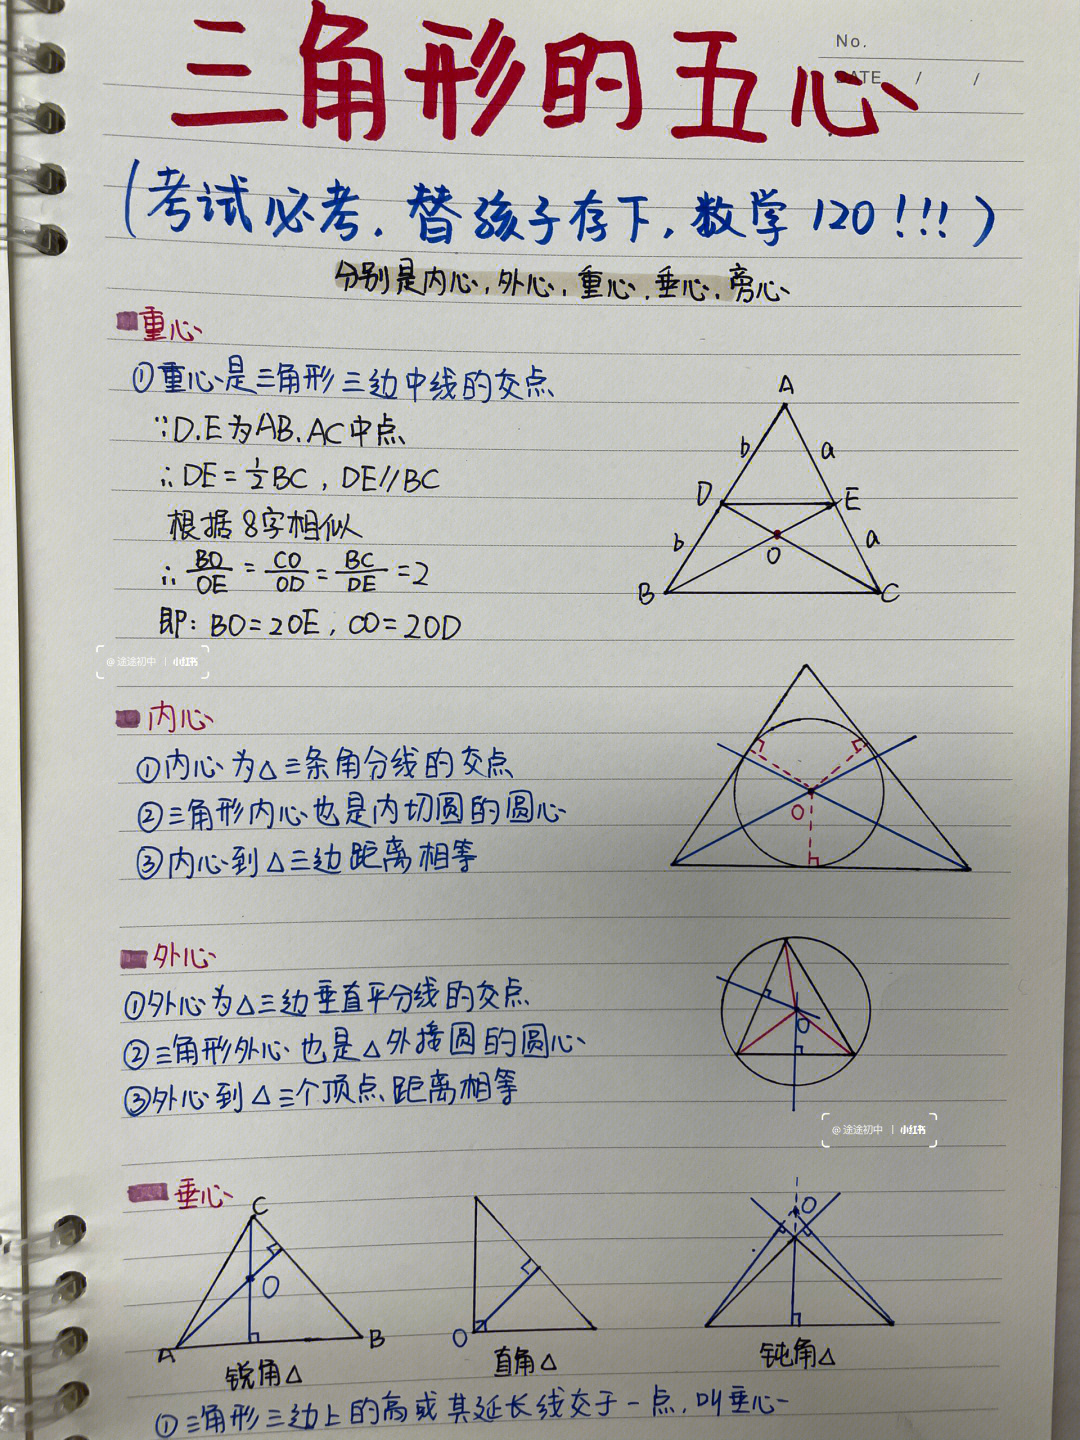 三角形的五心
No.
DATE / /
(考试必考.替孩子存下,数学120!!!)
分别是内心,外心,重心,垂心,旁心
重心
①重心是三角形三边中线的交点
∵D.E为AB.AC中点
∴DE=½BC,DE∥BC
根据8字相似
∴BO/OE=CO/OD=BC/DE=2
即:BO=2OE,CO=2OD
A
b a
D E
b O a
B C
@途途初中 | 小红书
内心
①内心为△三条角分线的交点
②三角形内心也是内切圆的圆心
③内心到△三边距离相等
O
外心
①外心为△三边垂直平分线的交点
②三角形外心也是△外接圆的圆心
③外心到△三个顶点距离相等
O
@途途初中 | 小红书
垂心
C
O
A B
锐角△
O
直角△
O
钝角△
①三角形三边上的高或其延长线交于一点,叫垂心